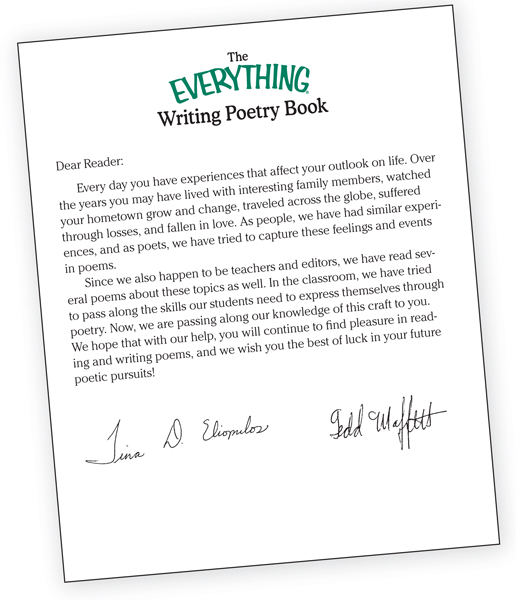 The
EVERYTHING®
Writing Poetry Book
Dear Reader:
Every day you have experiences that affect your outlook on life. Over
the years you may have lived with interesting family members, watched
your hometown grow and change, traveled across the globe, suffered
through losses, and fallen in love. As people, we have had similar experi-
ences, and as poets, we have tried to capture these feelings and events
in poems.
Since we also happen to be teachers and editors, we have read sev-
eral poems about these topics as well. In the classroom, we have tried
to pass along the skills our students need to express themselves through
poetry. Now, we are passing along our knowledge of this craft to you.
We hope that with our help, you will continue to find pleasure in read-
ing and writing poems, and we wish you the best of luck in your future
poetic pursuits!
Tina D. Eliopulos